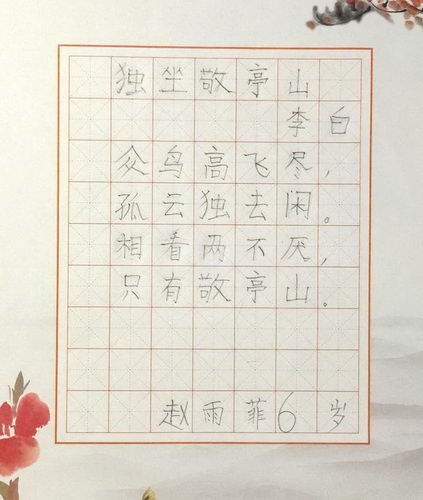 独坐敬亭山
李白
众鸟高飞尽，
孤云独去闲。
相看两不厌，
只有敬亭山。
赵雨菲6岁